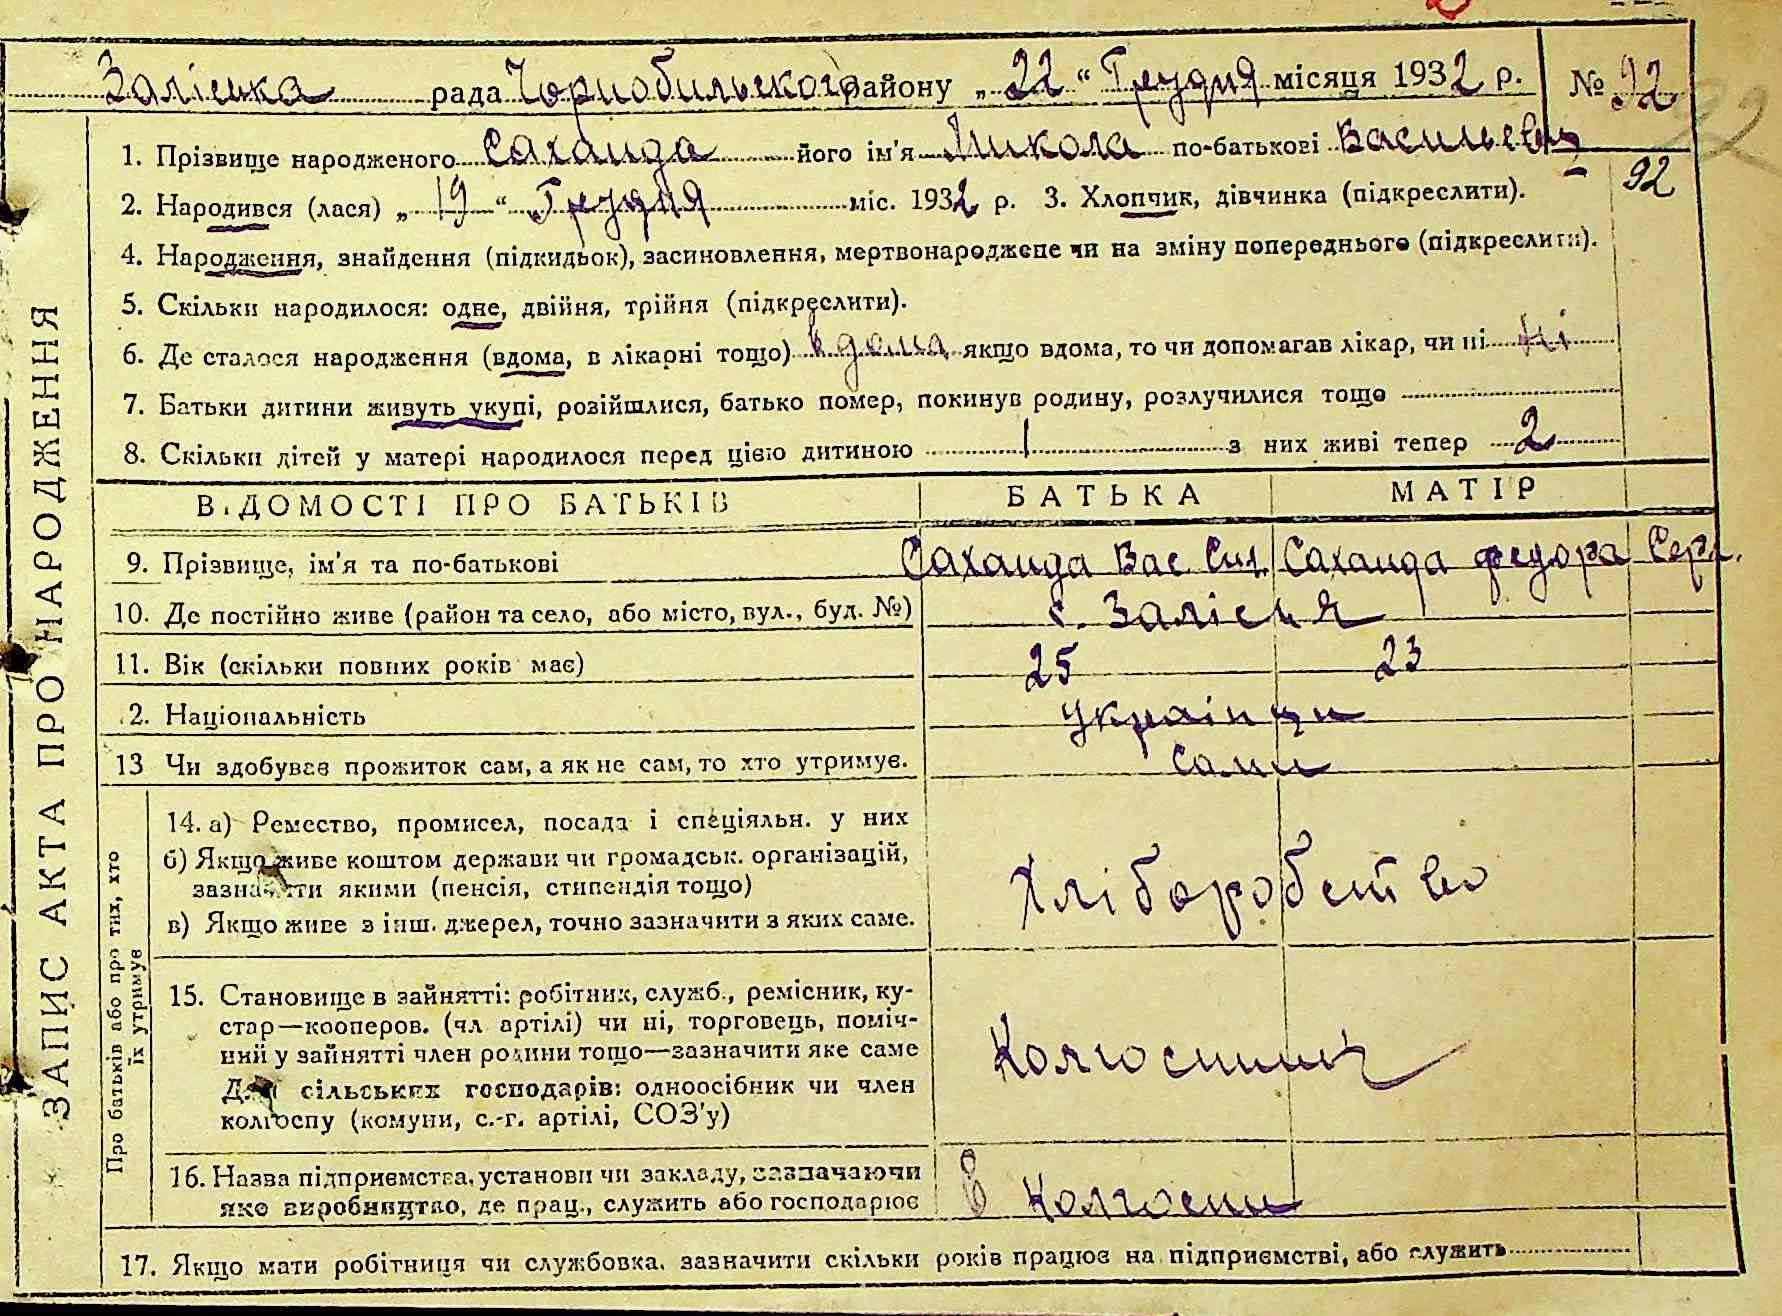 Заліська рада Чорнобильского району „22“ Грудня місяця 1932 р. № 92
1. Прізвище народженого Саханда його ім'я Микола по-батькові Васильевич
92
2. Народився (лася) „19“ Грудня міс. 1932 р. 3. Хлопчик, дівчинка (підкреслити).
4. Народження, знайдення (підкидьок), засиновлення, мертвонароджене чи на зміну попереднього (підкреслити).
5. Скільки народилося: одне, двійня, трійня (підкреслити).
6. Де сталося народження (вдома, в лікарні тощо) вдома якщо вдома, то чи допомагав лікар, чи ні ні
7. Батьки дитини живуть укупі, розійшлися, батько помер, покинув родину, розлучилися тощо
8. Скільки дітей у матері народилося перед цією дитиною 1 з них живі тепер 2
ВІДОМОСТІ ПРО БАТЬКІВ БАТЬКА МАТІР
9. Прізвище, ім'я та по-батькові Саханда Вас Саханда Федора Серг.
10. Де постійно живе (район та село, або місто, вул., буд. №) с. Залісся
11. Вік (скільки повних років має) 25 23
2. Національність українци
13 Чи здобуває прожиток сам, а як не сам, то хто утримує. сами
14. а) Ремество, промисел, посада і спеціяльн. у них
б) Якщо живе коштом держави чи громадськ. організацій,
зазначити якими (пенсія, стипендія тощо)
в) Якщо живе з інш. джерел, точно зазначити з яких саме.
Хліборобство
15. Становище в зайнятті: робітник, служб., ремісник, ку-
стар—кооперов. (чл артілі) чи ні, торговець, поміч-
ний у зайнятті член родини тощо—зазначити яке саме
Для сільських господарів: одноосібник чи член
колгоспу (комуни, с.-г. артілі, СОЗ'у)
16. Назва підприємства, установи чи закладу, зазначаючи
яке виробництво, де прац., служить або господарює
в колгоспи
17. Якщо мати робітниця чи службовка, зазначити скільки років працює на підприємстві, або служить
ЗАПИС АКТА ПРО НАРОДЖЕННЯ
Про батьків або про тих, хто
їх утримує